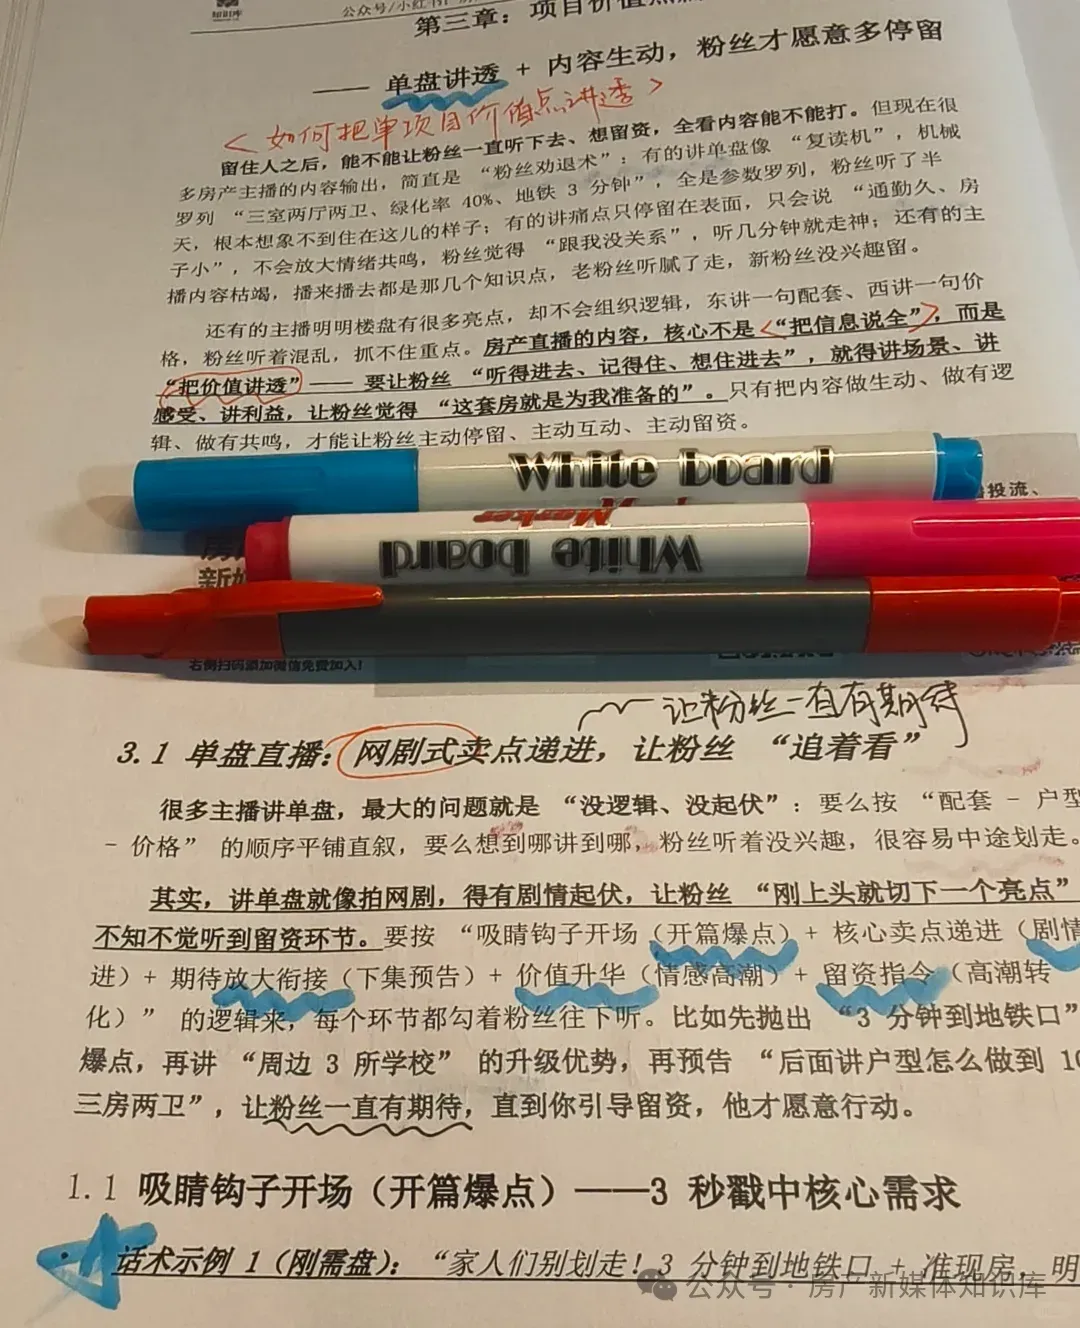 知识库
公众号/小红书
第三章：项目价值点
—— 单盘讲透 + 内容生动，粉丝才愿意多停留
<如何把单项目价值点讲透>
留住人之后，能不能让粉丝一直听下去、想留资，全看内容能不能打。但现在很
多房产主播的内容输出，简直是“粉丝劝退术”：有的讲单盘像“复读机”，机械
罗列“三室两厅两卫、绿化率 40%、地铁 3 分钟”，全是参数罗列，粉丝听了半
天，根本想象不到住在这儿的样子；有的讲痛点只停留在表面，只会说“通勤久、房
子小”，不会放大情绪共鸣，粉丝觉得“跟我没关系”，听几分钟就走神；还有的主
播内容枯竭，播来播去都是那几个知识点，老粉丝听腻了走，新粉丝没兴趣留。
还有的主播明明楼盘有很多亮点，却不会组织逻辑，东讲一句配套、西讲一句价
格，粉丝听着混乱，抓不住重点。房产直播的内容，核心不是<“把信息说全”>，而是
“把价值讲透”—— 要让粉丝“听得进去、记得住、想住进去”，就得讲场景、讲
感受、讲利益，让粉丝觉得“这套房就是为我准备的”。只有把内容做生动、做有逻
辑、做有共鸣，才能让粉丝主动停留、主动互动、主动留资。
White board
投流、
Marker
White board
新
右侧扫码添加微信免费加入！
让粉丝一直有期待
3.1 单盘直播：网剧式卖点递进，让粉丝“追着看”
很多主播讲单盘，最大的问题就是“没逻辑、没起伏”：要么按“配套 - 户型
- 价格”的顺序平铺直叙，要么想到哪讲到哪，粉丝听着没兴趣，很容易中途划走。
其实，讲单盘就像拍网剧，得有剧情起伏，让粉丝“刚上头就切下一个亮点”
不知不觉听到留资环节。要按“吸睛钩子开场（开篇爆点）+ 核心卖点递进（剧情
进）+ 期待放大衔接（下集预告）+ 价值升华（情感高潮）+ 留资指令（高潮转
化）”的逻辑来，每个环节都勾着粉丝往下听。比如先抛出“3 分钟到地铁口”
爆点，再讲“周边 3 所学校”的升级优势，再预告“后面讲户型怎么做到 10
三房两卫”，让粉丝一直有期待，直到你引导留资，他才愿意行动。
1.1 吸睛钩子开场（开篇爆点）——3 秒戳中核心需求
· 话术示例 1（刚需盘）：“家人们别划走！3 分钟到地铁口 + 准现房，明
公众号 · 房产新媒体知识库